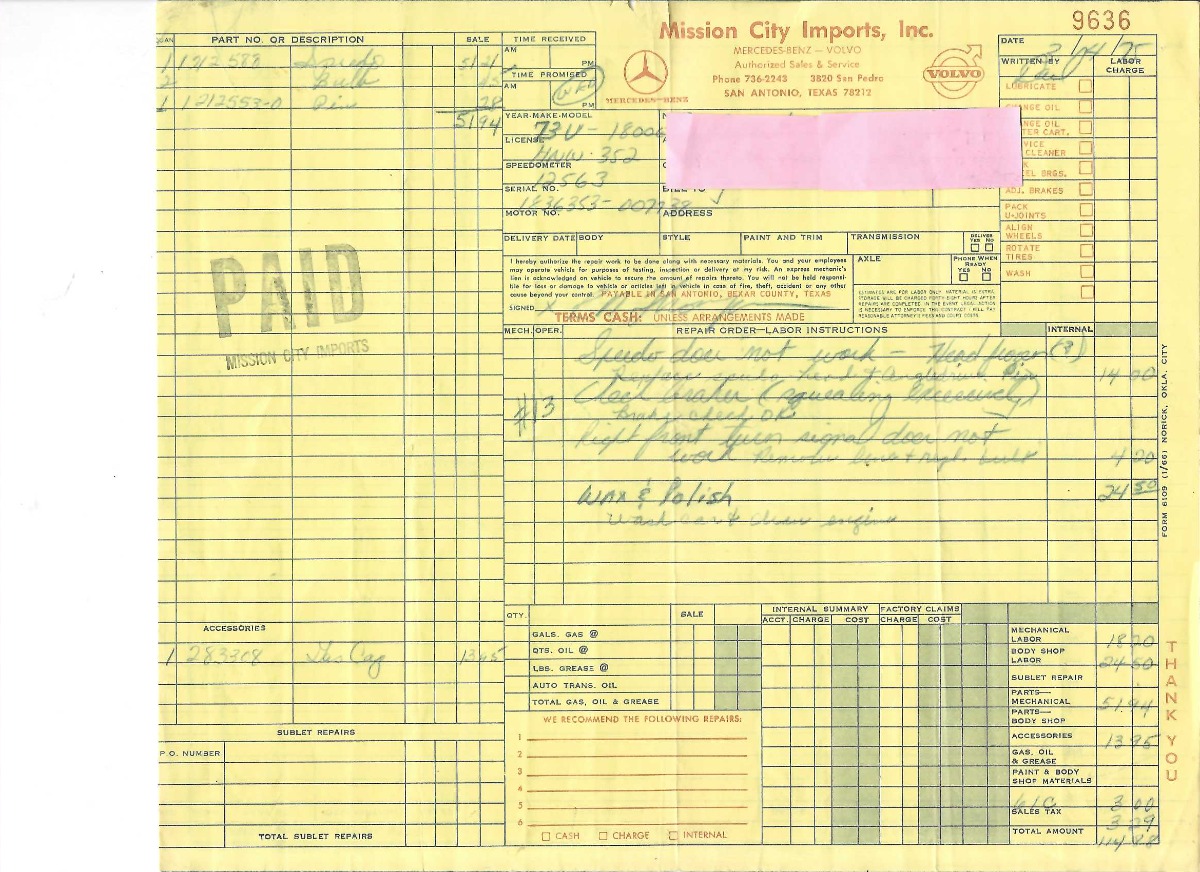 Mission City Imports, Inc.
MERCEDES-BENZ — VOLVO
Authorized Sales & Service
Phone 736-2243 3820 San Pedro
SAN ANTONIO, TEXAS 78212
MERCEDES-BENZ
VOLVO
9636
DATE 3/14/75
WRITTEN BY
LABOR CHARGE
LUBRICATE
CHANGE OIL
ANGE OIL
TER CART.
VICE
CLEANER
EL BRGS.
ADJ. BRAKES
PACK U-JOINTS
ALIGN WHEELS
ROTATE TIRES
WASH
QUAN PART NO. OR DESCRIPTION SALE
1 1212588 Speedo 5121
2 Bulb 45
1 1212553-0 Pin 28
5194
TIME RECEIVED
AM
PM
TIME PROMISED
AM
PM
YEAR-MAKE-MODEL
73 V - 1800
LICENSE
HNW-352
SPEEDOMETER
12563
SERIAL NO.
1836353-
MOTOR NO.
BILL TO
ADDRESS
DELIVERY DATE BODY STYLE PAINT AND TRIM TRANSMISSION DELIVER YES NO
I hereby authorize the repair work to be done along with necessary materials. You and your employees
may operate vehicle for purposes of testing, inspection or delivery at my risk. An express mechanic's
lien is acknowledged on vehicle to secure the amount of repairs thereto. You will not be held responsi-
ble for loss or damage to vehicle or articles left in vehicle in case of fire, theft, accident or any other
cause beyond your control. PAYABLE IN SAN ANTONIO, BEXAR COUNTY, TEXAS
SIGNED
TERMS CASH: UNLESS ARRANGEMENTS MADE
AXLE
PHONE WHEN READY
YES NO
ESTIMATES ARE FOR LABOR ONLY, MATERIAL IS EXTRA.
STORAGE WILL BE CHARGED FORTY-EIGHT HOURS AFTER
REPAIRS ARE COMPLETED IN THE EVENT LEGAL ACTION
IS NECESSARY TO ENFORCE THIS CONTRACT I WILL PAY
REASONABLE ATTORNEY'S FEES AND COURT COSTS
PAID
MISSION CITY IMPORTS
MECH. OPER. REPAIR ORDER—LABOR INSTRUCTIONS INTERNAL
Speedo does not work - Head frozen (?)
Repair speedo head & Angledrive Pin 14 00
#13 Check brakes (squealing excessively)
Brake check OK
Right front turn signal does not
work Remove lens & repl. bulb 4 20
Wax & Polish 24 50
Wash car & clean engine
FORM 6109 (1/66) NORICK, OKLA. CITY
ACCESSORIES
1 283308 Gas Cap 1395
SUBLET REPAIRS
P.O. NUMBER
TOTAL SUBLET REPAIRS
QTY. SALE
GALS. GAS @
QTS. OIL @
LBS. GREASE @
AUTO TRANS. OIL
TOTAL GAS, OIL & GREASE
WE RECOMMEND THE FOLLOWING REPAIRS:
1
2
3
4
5
6
CASH CHARGE INTERNAL
INTERNAL SUMMARY FACTORY CLAIMS
ACCT. CHARGE COST CHARGE COST
MECHANICAL LABOR 18 20
BODY SHOP LABOR 24 50
SUBLET REPAIR
PARTS—MECHANICAL 51.94
PARTS—BODY SHOP
ACCESSORIES 13 95
GAS, OIL & GREASE
PAINT & BODY SHOP MATERIALS
3 00
SALES TAX 3 29
TOTAL AMOUNT 114 88
THANK YOU